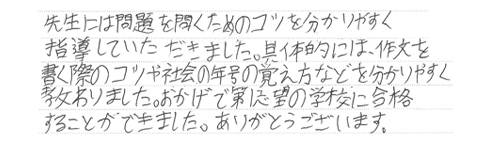 先生には問題を問くためのコツを分かりやすく
指導していただきました。具体的には、作文を
書く際のコツや社会の年号の覚え方などを分かりやすく
教わりました。おかげで第1志望の学校に合格
することができました。ありがとうございます。